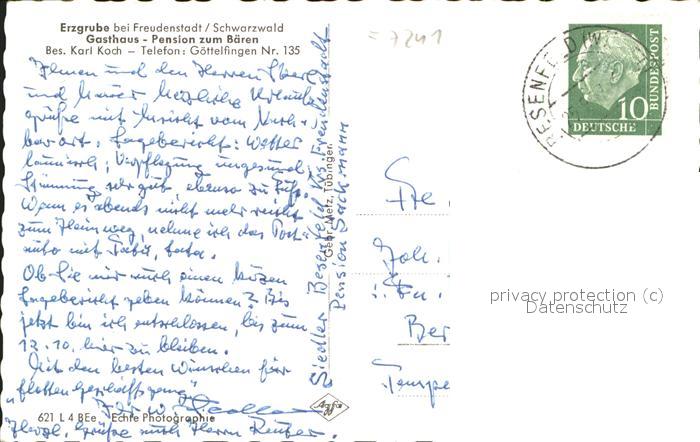 Erzgrube bei Freudenstadt / Schwarzwald
Gasthaus - Pension zum Bären
Bes. Karl Koch — Telefon: Göttelfingen Nr. 135
Ihnen und den Herren
und herzliche Urlaubs-
grüße mit Ansicht vom Nach-
barort. Lagebericht: Wetter
launisch, Verpflegung ungesund,
Stimmung sehr gut, ebenso zu Fuß.
Wenn es abends nicht mehr reicht
zum Heimweg, nehme ich das Post-
auto mit Tatü, tata.
Ob Sie mir auch einen kurzen
Lagebericht geben können? Bis
jetzt bin ich entschlossen, bis zum
12.10. hier zu bleiben.
Mit den besten Wünschen für
"flotten Geschäftsgang"
Ihr
Herzl. Grüße auch Herrn
621 L 4 BEe Echte Photographie
Siedler Besenfeld Krs Freudenstadt
Pension Sackmann
Gebr. Metz, Tübingen
7241
BESENFELD
10
DEUTSCHE
BUNDESPOST
Fre
Joh.
Fa.
Ber
Tempe
privacy protection (c)
Datenschutz